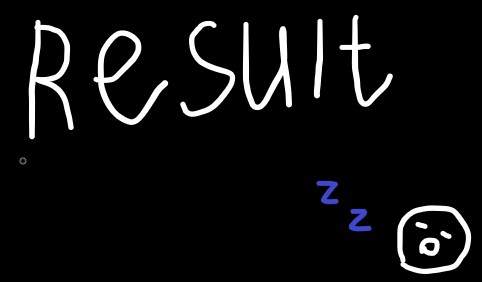 Result
z
z